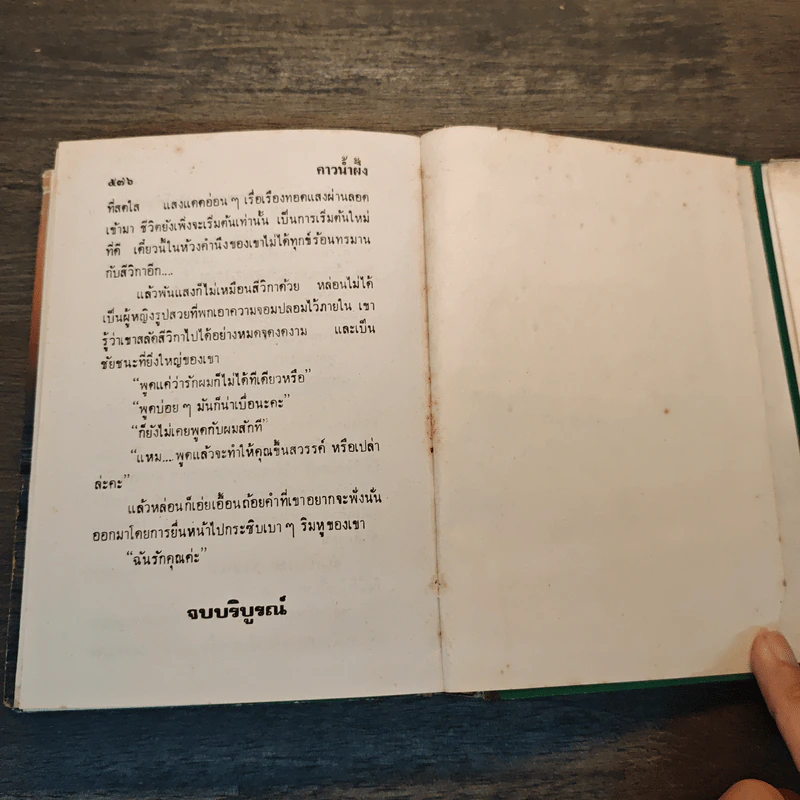 ๕๓๖ คาวน้ำผึ้ง
ที่สดใส แสงแดดอ่อน ๆ เรื่อเรืองทอดแสงผ่านลอด
เข้ามา ชีวิตยังเพิ่งจะเริ่มต้นเท่านั้น เป็นการเริ่มต้นใหม่
ที่ดี เดี๋ยวนี้ในห้วงคำนึงของเขาไม่ได้ทุกข์ร้อนทรมาน
กับสีวิกาอีก....
แล้วพันแสงก็ไม่เหมือนสีวิกาด้วย หล่อนไม่ได้
เป็นผู้หญิงรูปสวยที่พกเอาความจอมปลอมไว้ภายใน เขา
รู้ว่าเขาสลัดสีวิกาไปได้อย่างหมดจดงดงาม และเป็น
ชัยชนะที่ยิ่งใหญ่ของเขา
“พูดแค่ว่ารักผมก็ไม่ได้ทีเดียวหรือ”
“พูดบ่อย ๆ มันก็น่าเบื่อนะคะ”
“ก็ยังไม่เคยพูดกับผมสักที”
“แหม.... พูดแล้วจะทำให้คุณขึ้นสวรรค์ หรือเปล่า
ล่ะคะ”
แล้วหล่อนก็เอ่ยเอื้อนถ้อยคำที่เขาอยากจะฟังนั้น
ออกมาโดยการยื่นหน้าไปกระซิบเบา ๆ ริมหูของเขา
“ฉันรักคุณค่ะ”
จบบริบูรณ์